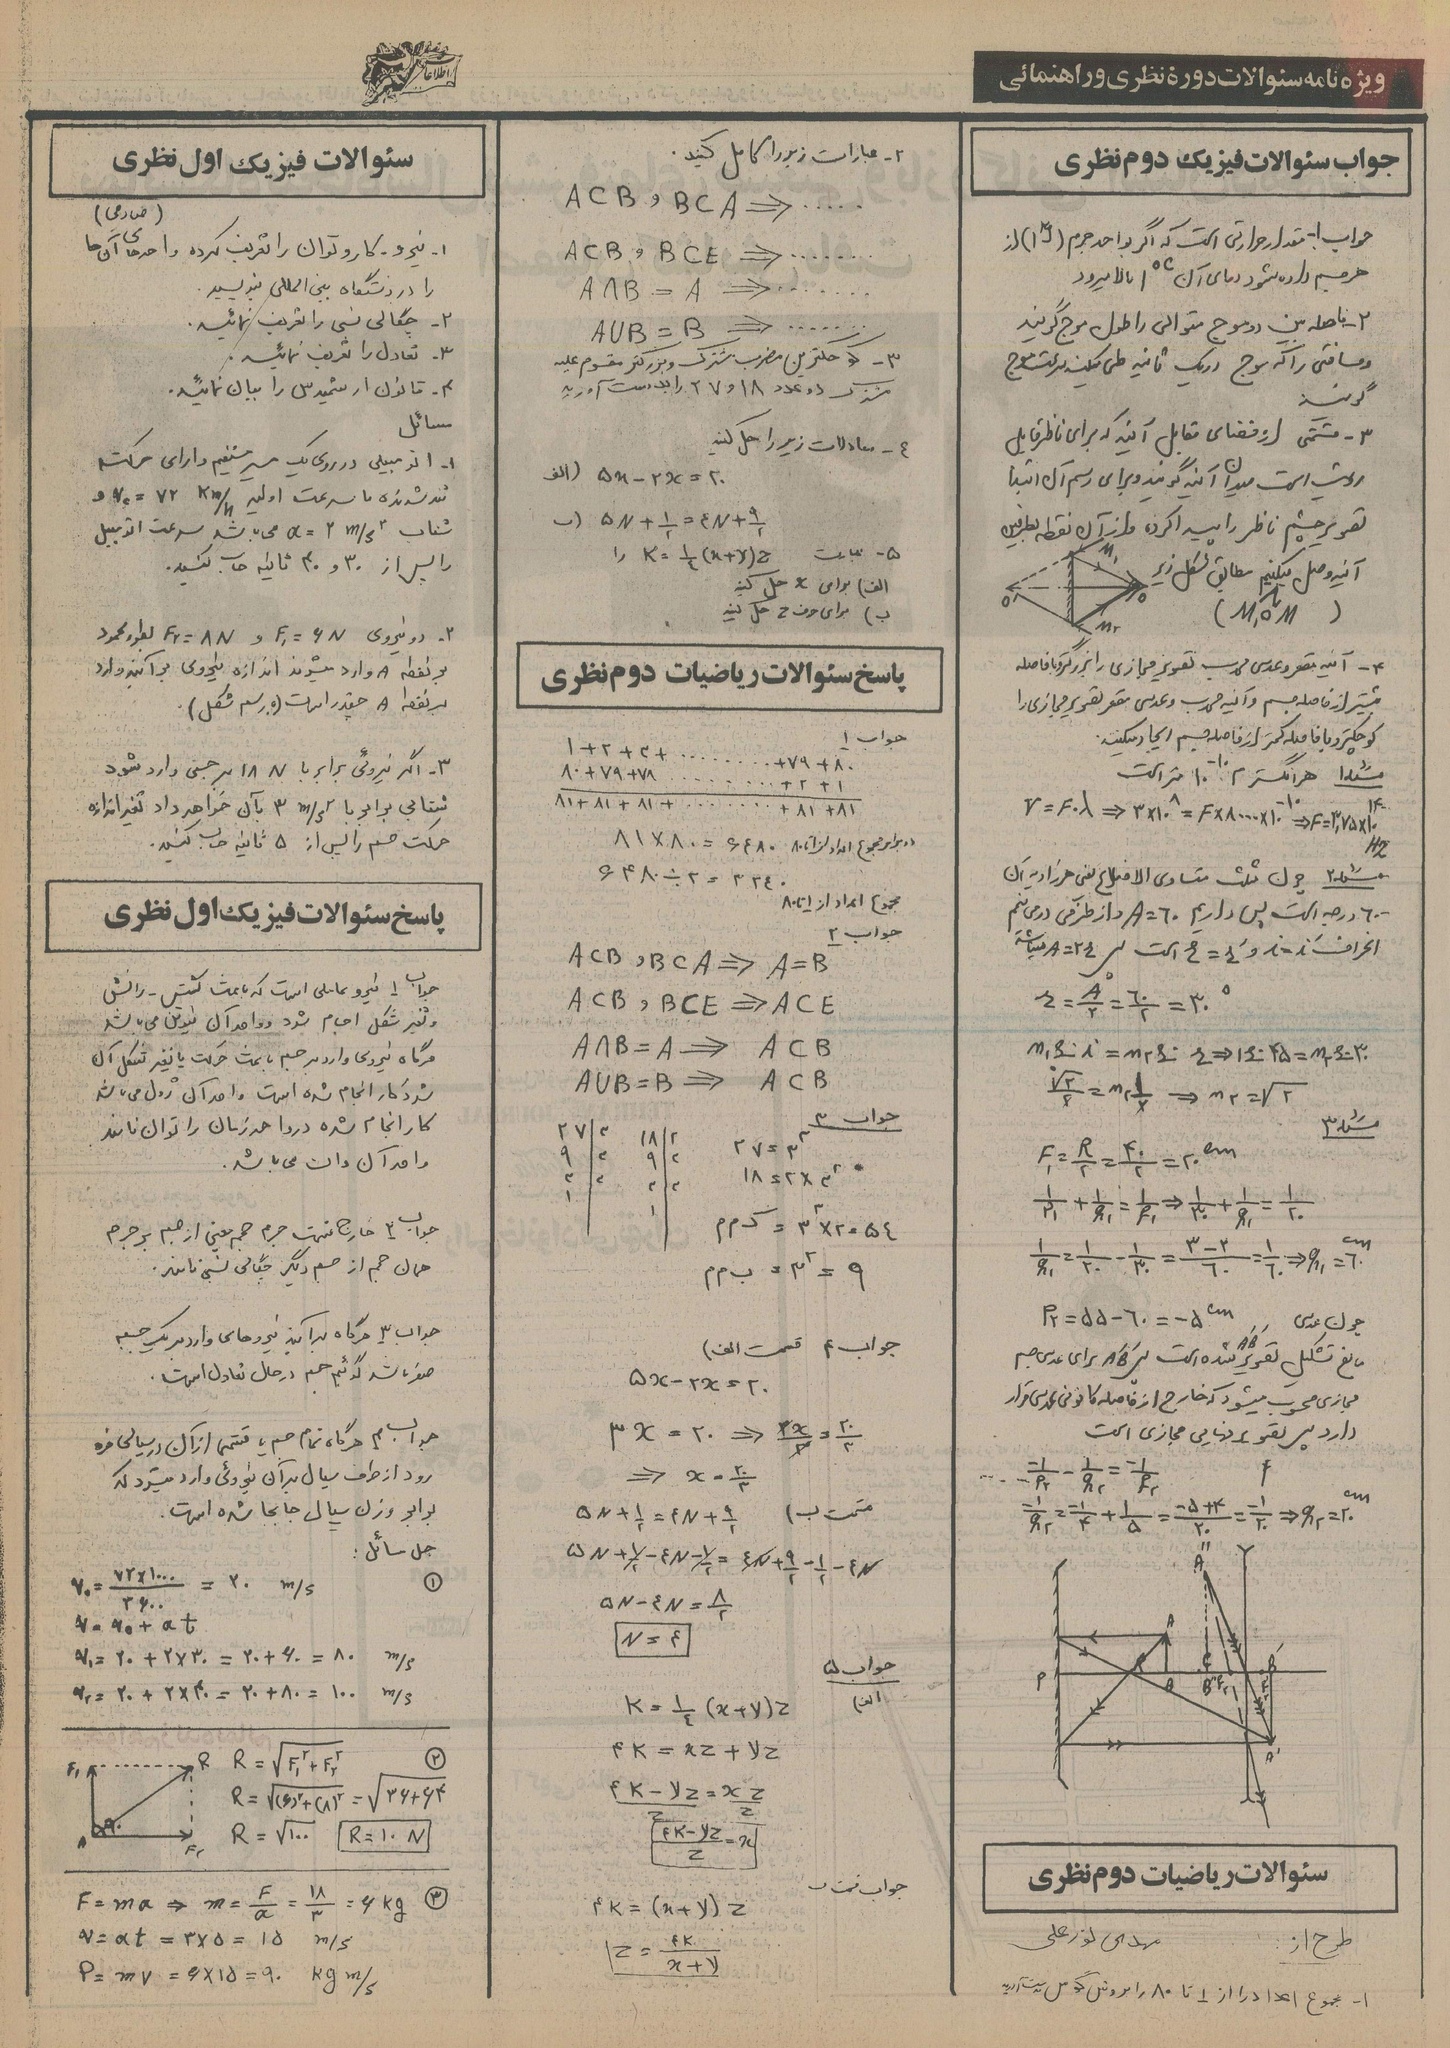 ویژه نامه سئوالات دورهٔ نظری و راهنمائی
جواب سئوالات فیزیک دوم نظری
جواب ۱- مقدار حرارتی است که اگر بواحد جرم (۱ gr) از
هر جسم داده شود دمای آن ۱°C بالا میرود
۲- فاصله بین دو موج متوالی را طول موج گویند
و مسافتی را که موج در یک ثانیه طی میکند سرعت موج
گویند
۳- قسمتی از فضای مقابل آئینه که برای ناظر قابل
رویت است میدان آئینه گویند و برای رسم آن ابتدا
تصویر چشم ناظر را پیدا کرده و از آن نقطه بطرفین
آئینه وصل میکنیم مطابق شکل زیر
۴- آئینه مقعر و عدسی محدب تصویر مجازی را بزرگتر و با فاصله
بیشتر از فاصله جسم و آئینه محدب و عدسی مقعر تصویر مجازی را
کوچکتر و با فاصله کمتر از فاصله جسم ایجاد میکند.
مسئله ۱ هر انگسترم ۱۰⁻¹⁰ متر است
V = F·λ ⇒ ۳×۱۰^۸ = F×۸۰۰۰×۱۰^-۱۰ ⇒ F=۳٫۷۵×۱۰^۱۴
Hz
مسئله ۲ چون مثلث متساوی الاضلاع یعنی هر زاویه آن
۶۰ درجه است پس داریم A=۶۰ و از طرفی در می نیمم
r = A/۲ = ۶۰/۲ = ۳۰°
n₁ sin i = n₂ sin r ⇒ ۱ sin ۴۵ = n₂ sin ۳۰
√۲/۲ = n₂ ۱/۲ ⇒ n₂ = √۲
مسئله ۳
F₁ = R/۲ = ۴۰/۲ = ۲۰ cm
۱/P₁ + ۱/q₁ = ۱/F₁ ⇒ ۱/۳۰ + ۱/q₁ = ۱/۲۰
۱/q₁ = ۱/۲۰ - ۱/۳۰ = ۳-۲/۶۰ = ۱/۶۰ ⇒ q₁ = ۶۰ cm
چون عدسی P₂ = ۵۵-۶۰ = -۵ cm
مانع تشکیل تصویر A'B' شده است پس A'B' برای عدسی جسم
مجازی محسوب میشود که خارج از فاصله کانونی عدسی قرار
دارد پس تصویر نهایی مجازی است
-۱/P₂ - ۱/q₂ = -۱/F₂
-۱/q₂ = -۱/۴ + ۱/۵ = -۵+۴/۲۰ = -۱/۲۰ ⇒ q₂ = ۲۰ cm
سئوالات ریاضیات دوم نظری
طرح از: مهدی نورعلی
۲- عبارات زیر را کامل کنید.
A⊂B و B⊂A ⇒ ......
A⊂B و B⊂E ⇒ ........
A∩B = A ⇒ ........
A∪B = B ⇒ ......
۳- کوچکترین مضرب مشترک و بزرگتر مقسوم علیه
مشترک دو عدد ۱۸ و ۲۷ را بدست آورید
۴- معادلات زیر را حل کنید
الف) ۵x-۲x=۲۰
ب) ۵N+۱/۲=۴N+۹/۲
۵- عبارت K=۱/۴(x+y)z را
الف) برای x حل کنید
ب) برای حرف z حل کنید
پاسخ سئوالات ریاضیات دوم نظری
جواب ۱
۱+۲+۳+ ......... +۷۹+۸۰
۸۰+۷۹+۷۸ ......... +۲+۱
۸۱+۸۱+۸۱+ ......... +۸۱+۸۱
دو برابر مجموع اعداد از ۱ تا ۸۰ ۸۱×۸۰ = ۶۴۸۰
۶۴۸۰ ÷ ۲ = ۳۲۴۰
مجموع اعداد از ۱ تا ۸۰
جواب ۲
A⊂B و B⊂A ⇒ A=B
A⊂B و B⊂E ⇒ A⊂E
A∩B=A ⇒ A⊂B
A∪B=B ⇒ A⊂B
جواب ۳
۲۷ = ۳^۳
۱۸ = ۲×۳^۲
ک م م = ۳^۳×۲ = ۵۴
ب م م = ۳^۲ = ۹
جواب ۴ قسمت الف)
۵x-۲x=۲۰
۳x = ۲۰ ⇒ ۳x/۳ = ۲۰/۳
⇒ x = ۲۰/۳
قسمت ب) ۵N+۱/۲=۴N+۹/۲
۵N+۱/۲-۴N-۱/۲ = ۴N+۹/۲-۱/۲-۴N
۵N-۴N = ۸/۲
N = ۴
جواب ۵
الف) K=۱/۴ (x+y)z
۴K = xz + yz
۴K-yz/z = xz/z
۴K-yz/z = x
جواب قسمت ب
۴K = (x+y) z
z = ۴K/x+y
سئوالات فیزیک اول نظری
۱- نیرو- کار و توان را تعریف کرده واحدهای آن ها
را در دستگاه بین المللی بنویسید.
۲- چگالی نسبی را تعریف نمائید.
۳- تعادل را تعریف نمائید.
۴- قانون ارشمیدس را بیان نمائید.
مسائل
۱- اتومبیلی در روی یک مسیر مستقیم دارای حرکت
تند شونده با سرعت اولیه V₀ = ۷۲ Km/h و
شتاب a = ۲ m/s² می باشد سرعت اتومبیل
را پس از ۳۰ و ۴۰ ثانیه حساب کنید.
۲- دو نیروی F₁ = ۶N و F₂ = ۸N بطور عمود
بر نقطه A وارد میشوند اندازه نیروی برآیند وارد
بر نقطه A چقدر است (با رسم شکل).
۳- اگر نیروئی برابر با ۱۸ N بر جسمی وارد شود
شتابی برابر با ۳ m/s² بآن خواهد داد تغییر اندازه
حرکت جسم را پس از ۵ ثانیه حساب کنید.
پاسخ سئوالات فیزیک اول نظری
جواب ۱ نیرو عاملی است که باعث کشش - رانش
و تغییر شکل اجسام شود و واحد آن نیوتن می باشد
هرگاه نیروی وارد بر جسم باعث حرکت یا تغییر شکل آن
شود کار انجام شده است واحد آن ژول می باشد
کار انجام شده در واحد زمان را توان نامند
واحد آن وات می باشد.
جواب ۲ خارج قسمت جرم حجم معینی از جسم بر جرم
همان حجم از جسم دیگر چگالی نسبی نامند.
جواب ۳ هرگاه برآیند نیروهای وارد بر یک جسم
صفر باشد گوئیم جسم در حال تعادل است.
جواب ۴ هرگاه تمام جسم یا قسمتی از آن در سیالی فرو
رود از طرف سیال بر آن نیروئی وارد میشود که
برابر وزن سیال جابجا شده است.
حل مسائل:
① V₀ = ۷۲×۱۰۰۰/۳۶۰۰ = ۲۰ m/s
V = V₀ + at
V₁ = ۲۰ + ۲×۳۰ = ۲۰+۶۰ = ۸۰ m/s
V₂ = ۲۰ + ۲×۴۰ = ۲۰+۸۰ = ۱۰۰ m/s
② R = √F₁²+F₂²
R = √(۶)²+(۸)² = √۳۶+۶۴
R = √۱۰۰ R = ۱۰ N
③ F = ma ⇒ m = F/a = ۱۸/۳ = ۶ kg
V = at = ۳×۵ = ۱۵ m/s
P = mV = ۶×۱۵ = ۹۰ kg m/s